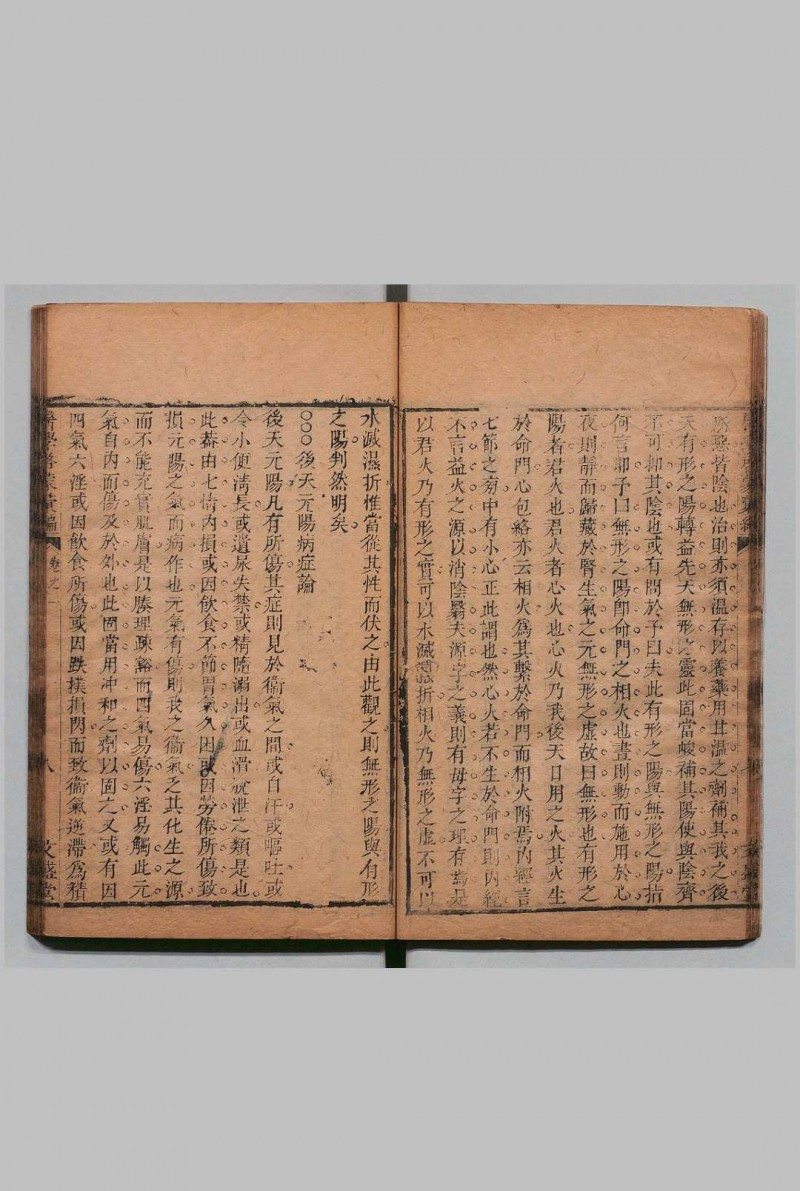 所惡皆陰也治則亦須溫存以養藥用甘溫之劑補其我之後
天有形之陽轉益先天無形之靈此固當峻補其陽使與陰齊
不可抑其陰也或有問於予曰夫此有形之陽與無形之陽指
何言耶予曰無形之陽卽命門之相火也晝則動而施用於心
夜則靜而歸藏於腎生氣之元無形之虛故曰無形也有形之
陽者君火也君火者心火也心火乃我後天日用之火其火生
於命門心包絡亦云相火爲其繫於命門而相火附焉內經言
七節之旁中有小心正此謂也然心火若不生於命門則內經
不言益火之源以消陰翳夫源字之義則有母字之理有焉是
以君火乃有形之實可以水滅濕折相火乃無形之虛不可以
水滅濕折惟當從其性而伏之由此觀之則無形之陽與有形
之陽判然明矣
○○○後天元陽病症論
後天元陽凡有所傷其症則見於衞氣之間或自汗或嘔吐或
令小便清長或遺尿失禁或精隨溺出或血滑流泄之類是也
此葢由七情內損或因飲食不節胃氣久困或因勞倦所傷致
損元陽之氣而病作也元氣有傷則我之衞氣乏其化生之源
而不能充實肌膚是以腠理疎豁而四氣易傷六淫易觸此元
氣自內而傷及於外也此固當用冲和之劑以固之又或有因
四氣六淫或因飲食所傷或因跌撲損閃而致衞氣逆滯爲積
醫學啓蒙彙編
卷之一
八
文盛堂